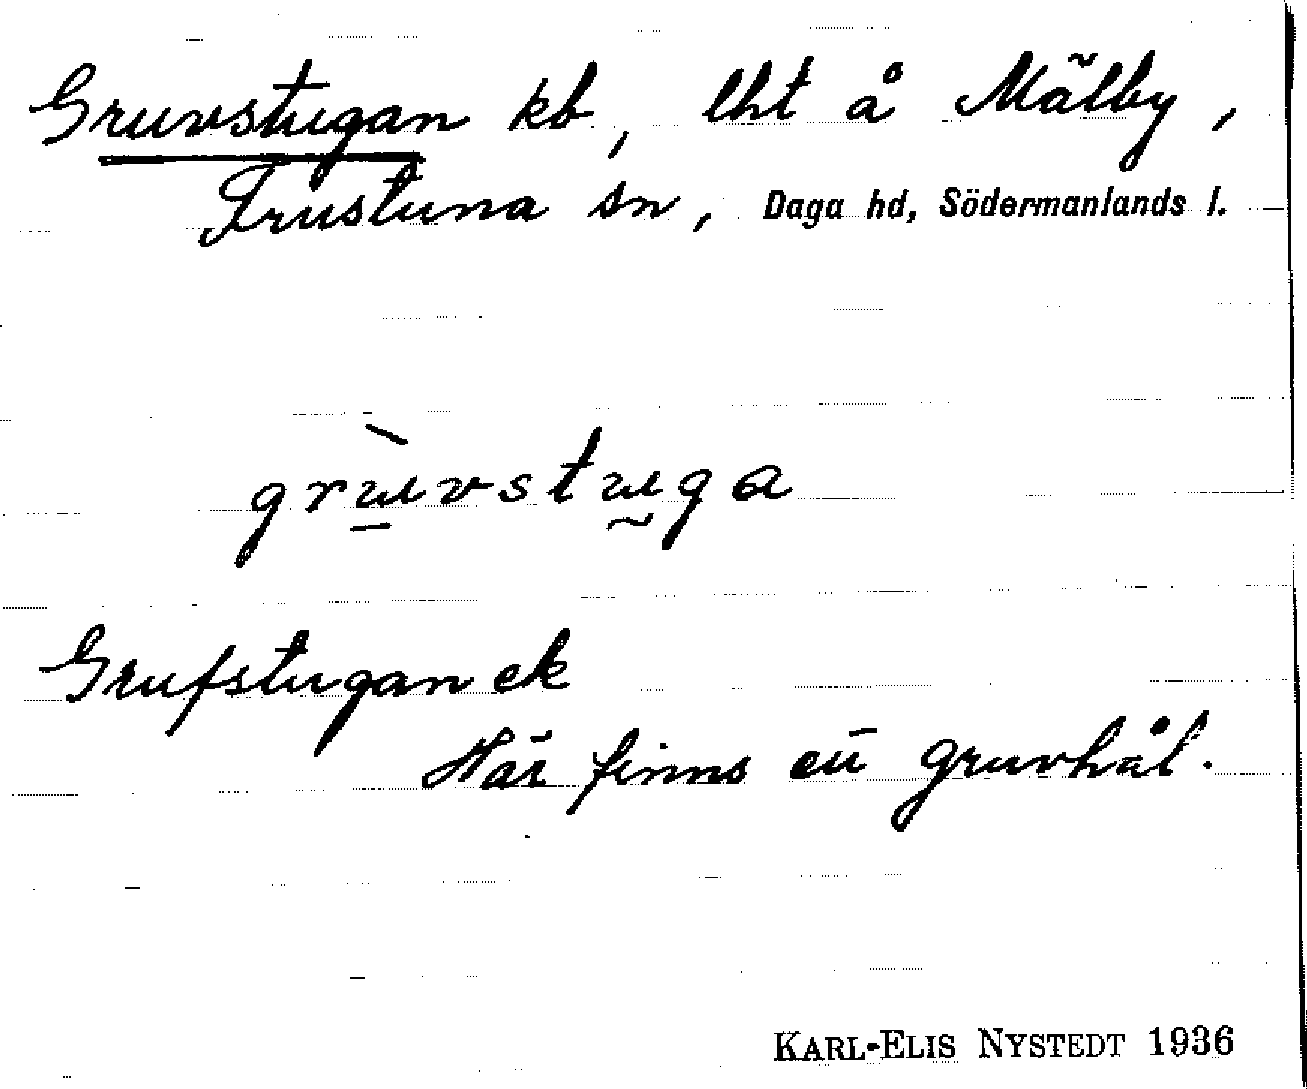 Gruvstugan kb, lht å Mälby,
Frustuna sn, Daga hd, Södermanlands l.
grɯ̀vstɯga
Grufstugan ek
Här finns ett gruvhål.
KARL-ELIS NYSTEDT 1936